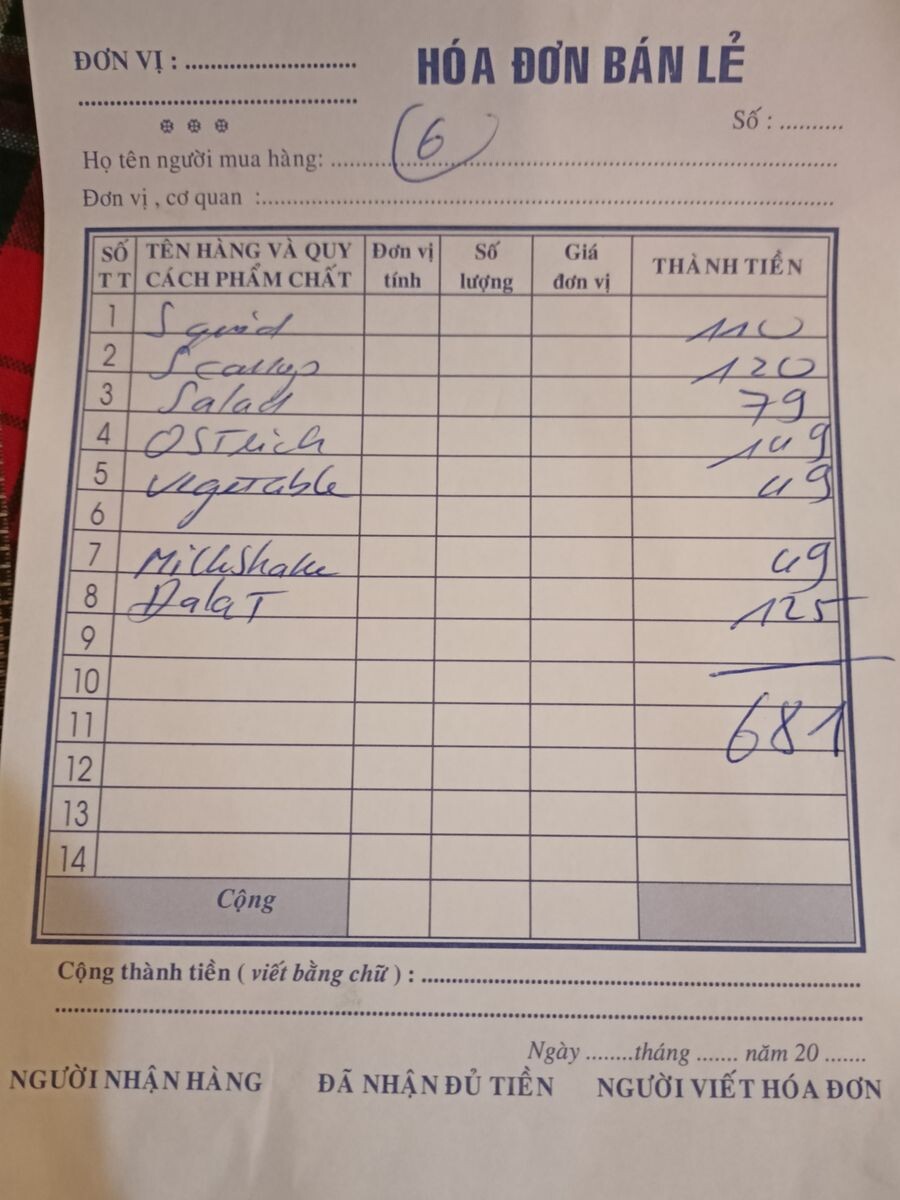 ĐƠN VỊ : ........................... HÓA ĐƠN BÁN LẺ
Số : ..........
Họ tên người mua hàng: ........................... 6
Đơn vị , cơ quan :...........................
SỐ TT TÊN HÀNG VÀ QUY CÁCH PHẨM CHẤT Đơn vị tính Số lượng Giá đơn vị THÀNH TIỀN
1 Squid 110
2 Scallop 120
3 Salad 79
4 OSTrich 149
5 vegetable 49
6
7 Milkshake 49
8 DalaT 125
9
10
11 681
12
13
14
Cộng
Cộng thành tiền ( viết bằng chữ ) : ...........................
Ngày ........tháng ....... năm 20 .......
NGƯỜI NHẬN HÀNG ĐÃ NHẬN ĐỦ TIỀN NGƯỜI VIẾT HÓA ĐƠN